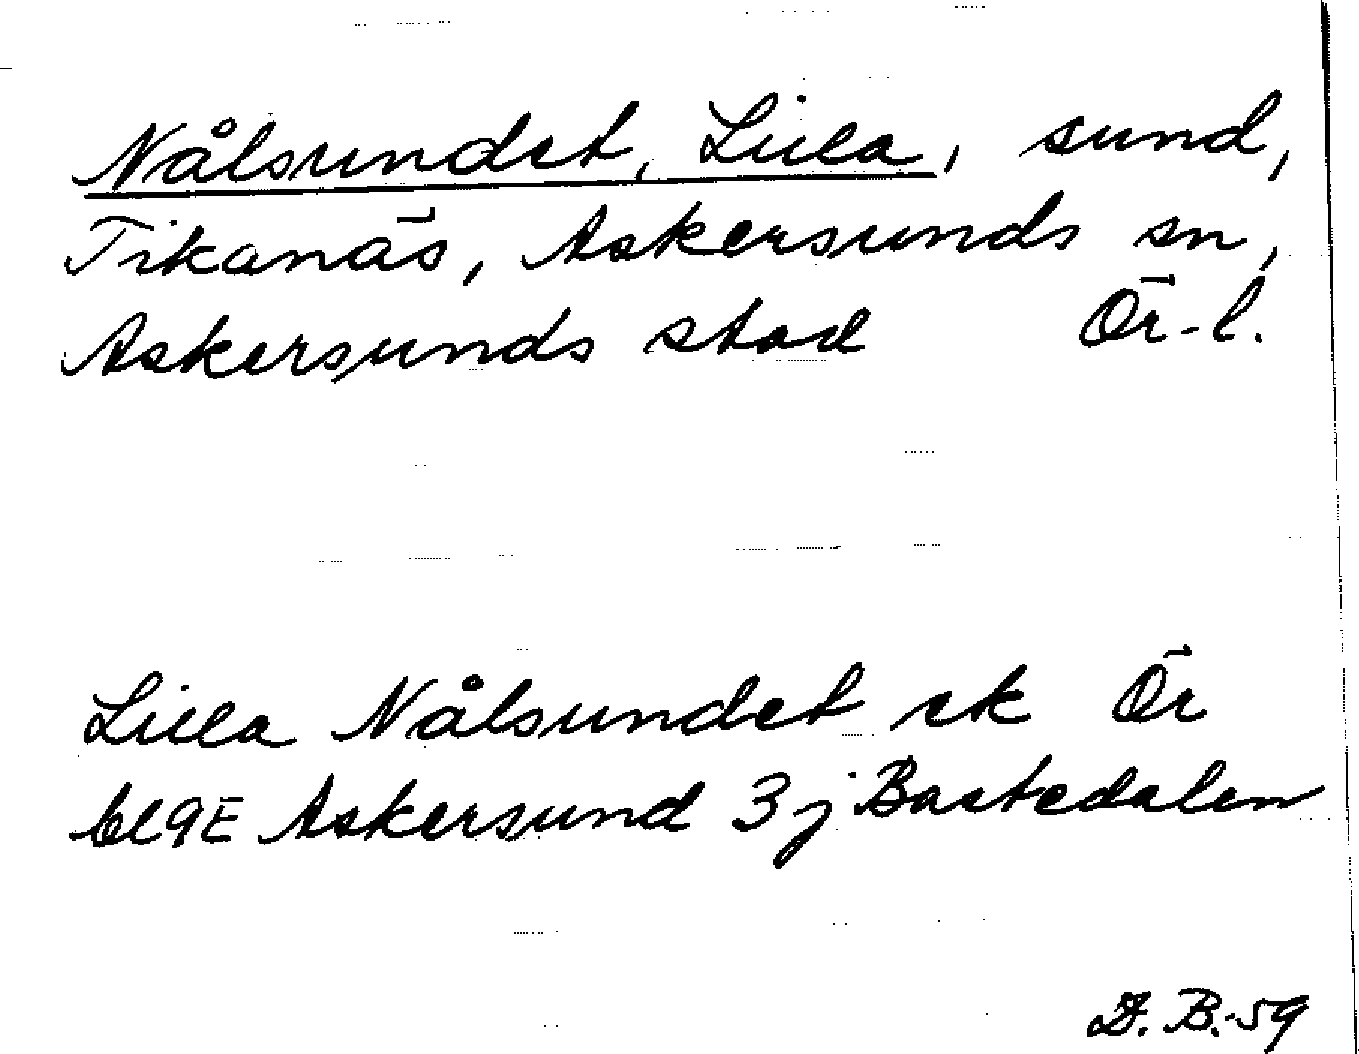 Nålsundet, Lilla, sund,
Tikanäs, Askersunds sn,
Askersunds stad Ör-l.
Lilla Nålsundet ek Ör
bl 9E Askersund 3j Bastedalen
D. B.-59